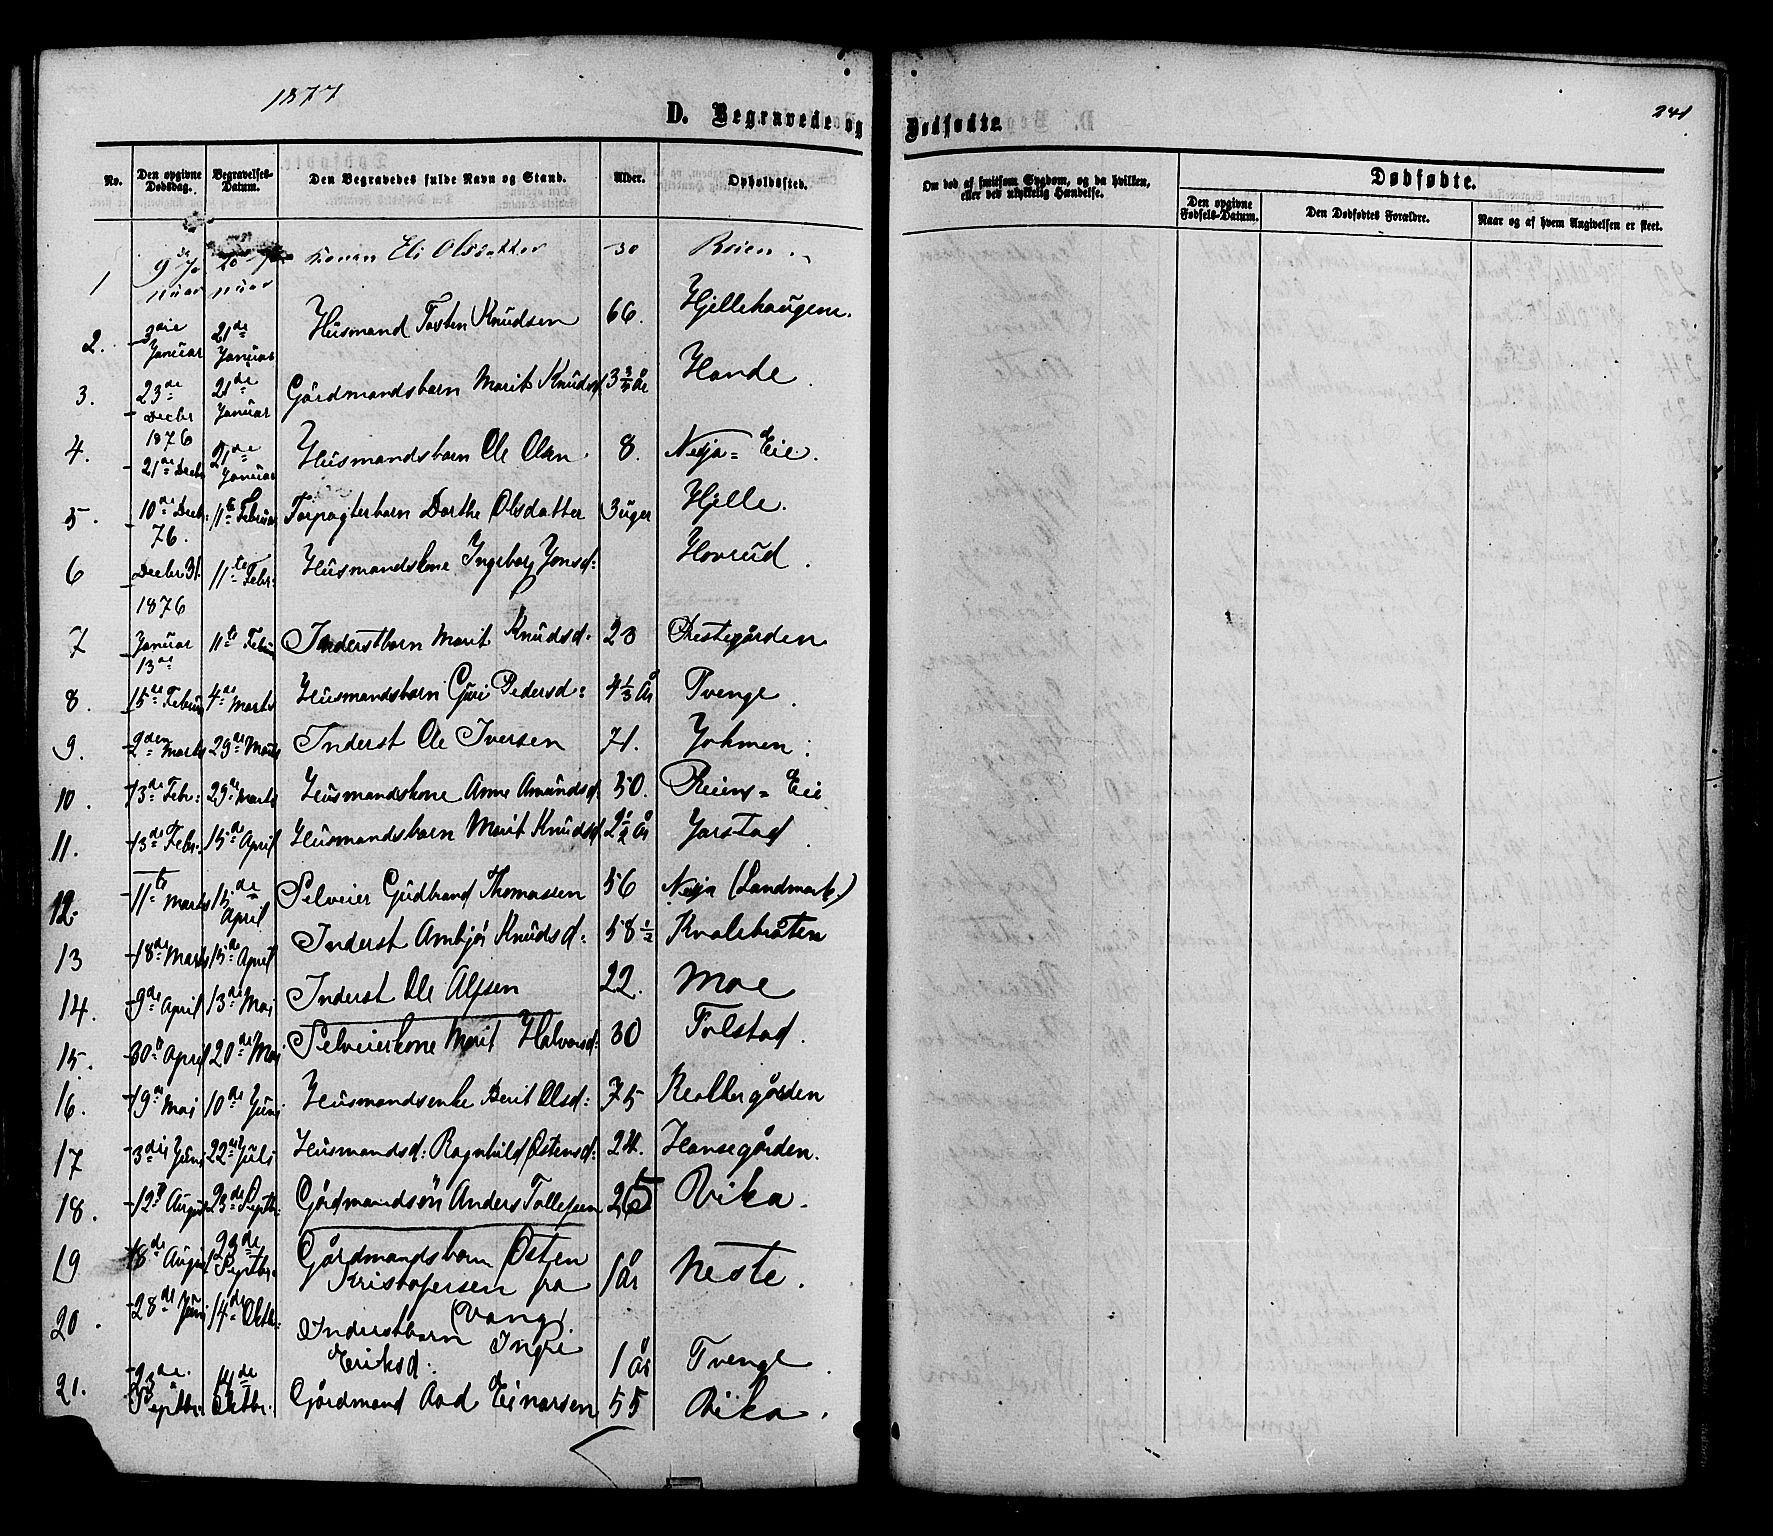 1877
241
D. Begravede og Dødfødte.
No. Den opgivne Dødsdag. Begravelses-Datum. Den Begravedes fulde Navn og Stand. Alder. Opholdssted.
Om død af smitsom Sygdom, og da hvilken, eller ved ulykkelig Hændelse.
Dødfødte.
Den opgivne Fødsels-Datum. Den Dødfødtes Forældre. Naar og af hvem Angivelsen er skeet.
1 Konen Eli Olsdatter 30 Reien
2. 3die Januar 21de Januar Husmand Tosten Knudsen 66. Hjellehaugene.
3. 23de Decbr 1876 21de Januar Gårdmandsbarn Marit Knudsd 3 3/4 år Hande.
4. 21de Decbr 21de Januar Husmandsbarn Ole Olsn. 8. Nesja=Eie.
5. 10de Decb: 76. 11te Februar Forpagterbarn Dorthe Olsdatter 3 uger Hjelle.
6 Decbr 31. 1876 11te Febr: Husmandskone Ingeborg Jonsd: Hovrud.
7 Januar 13de 11te Februar Inderstbarn Marit Knudsd: 23 Prestegården
8. 15de Februar 4de Marts Husmandsbarn Guri Pedersd: 4 1/3 År Tvenge.
9. 2den Marts 29de Marts Inderst Ole Iversen 71.
10. 13de Febr: 29de Marts Husmandskone Anne Amundsd 50. Reiens=Eie
11. 13de Febr: 15de April Husmandsbarn Marit Knudsd 2 1/2 år Jarstad
12. 11te Marts 15de April Selveier Gudbrand Thomassen 56 Nesja (Landmark.)
13 18de Marts 15de April Inderst Ambjør Knudsd: 58 1/2 Kvalebråten
14. 9de April 13de Mai Inderst Ole Alfsen 22. Moe
15. 30te April 20de Mai Selveierkone Marit Halvorsd: 30 Folstad.
16. 19de Mai 10de Juni Husmandsenke Berit Olsd: 75
17 3die Juni 22de Juli Husmandsd: Ragnhild Østensd: 24. Hansegården.
18. 12te August 23de Septbr: Gårdmandsön Anders Tollefsen 26 Vika.
19 18de August 23de Septbr. Gårdmandsbarn Østen
Kristofersen fra 1 år Neste.
(Vang).
20. 28de Juni 14de Oktbr: Inderstbarn Ingri
Eriksd: 1 år Tvenge.
21. 23de Septbr. 14de Oktbr. Gårdmand Aad Einarsen 55 Vika.